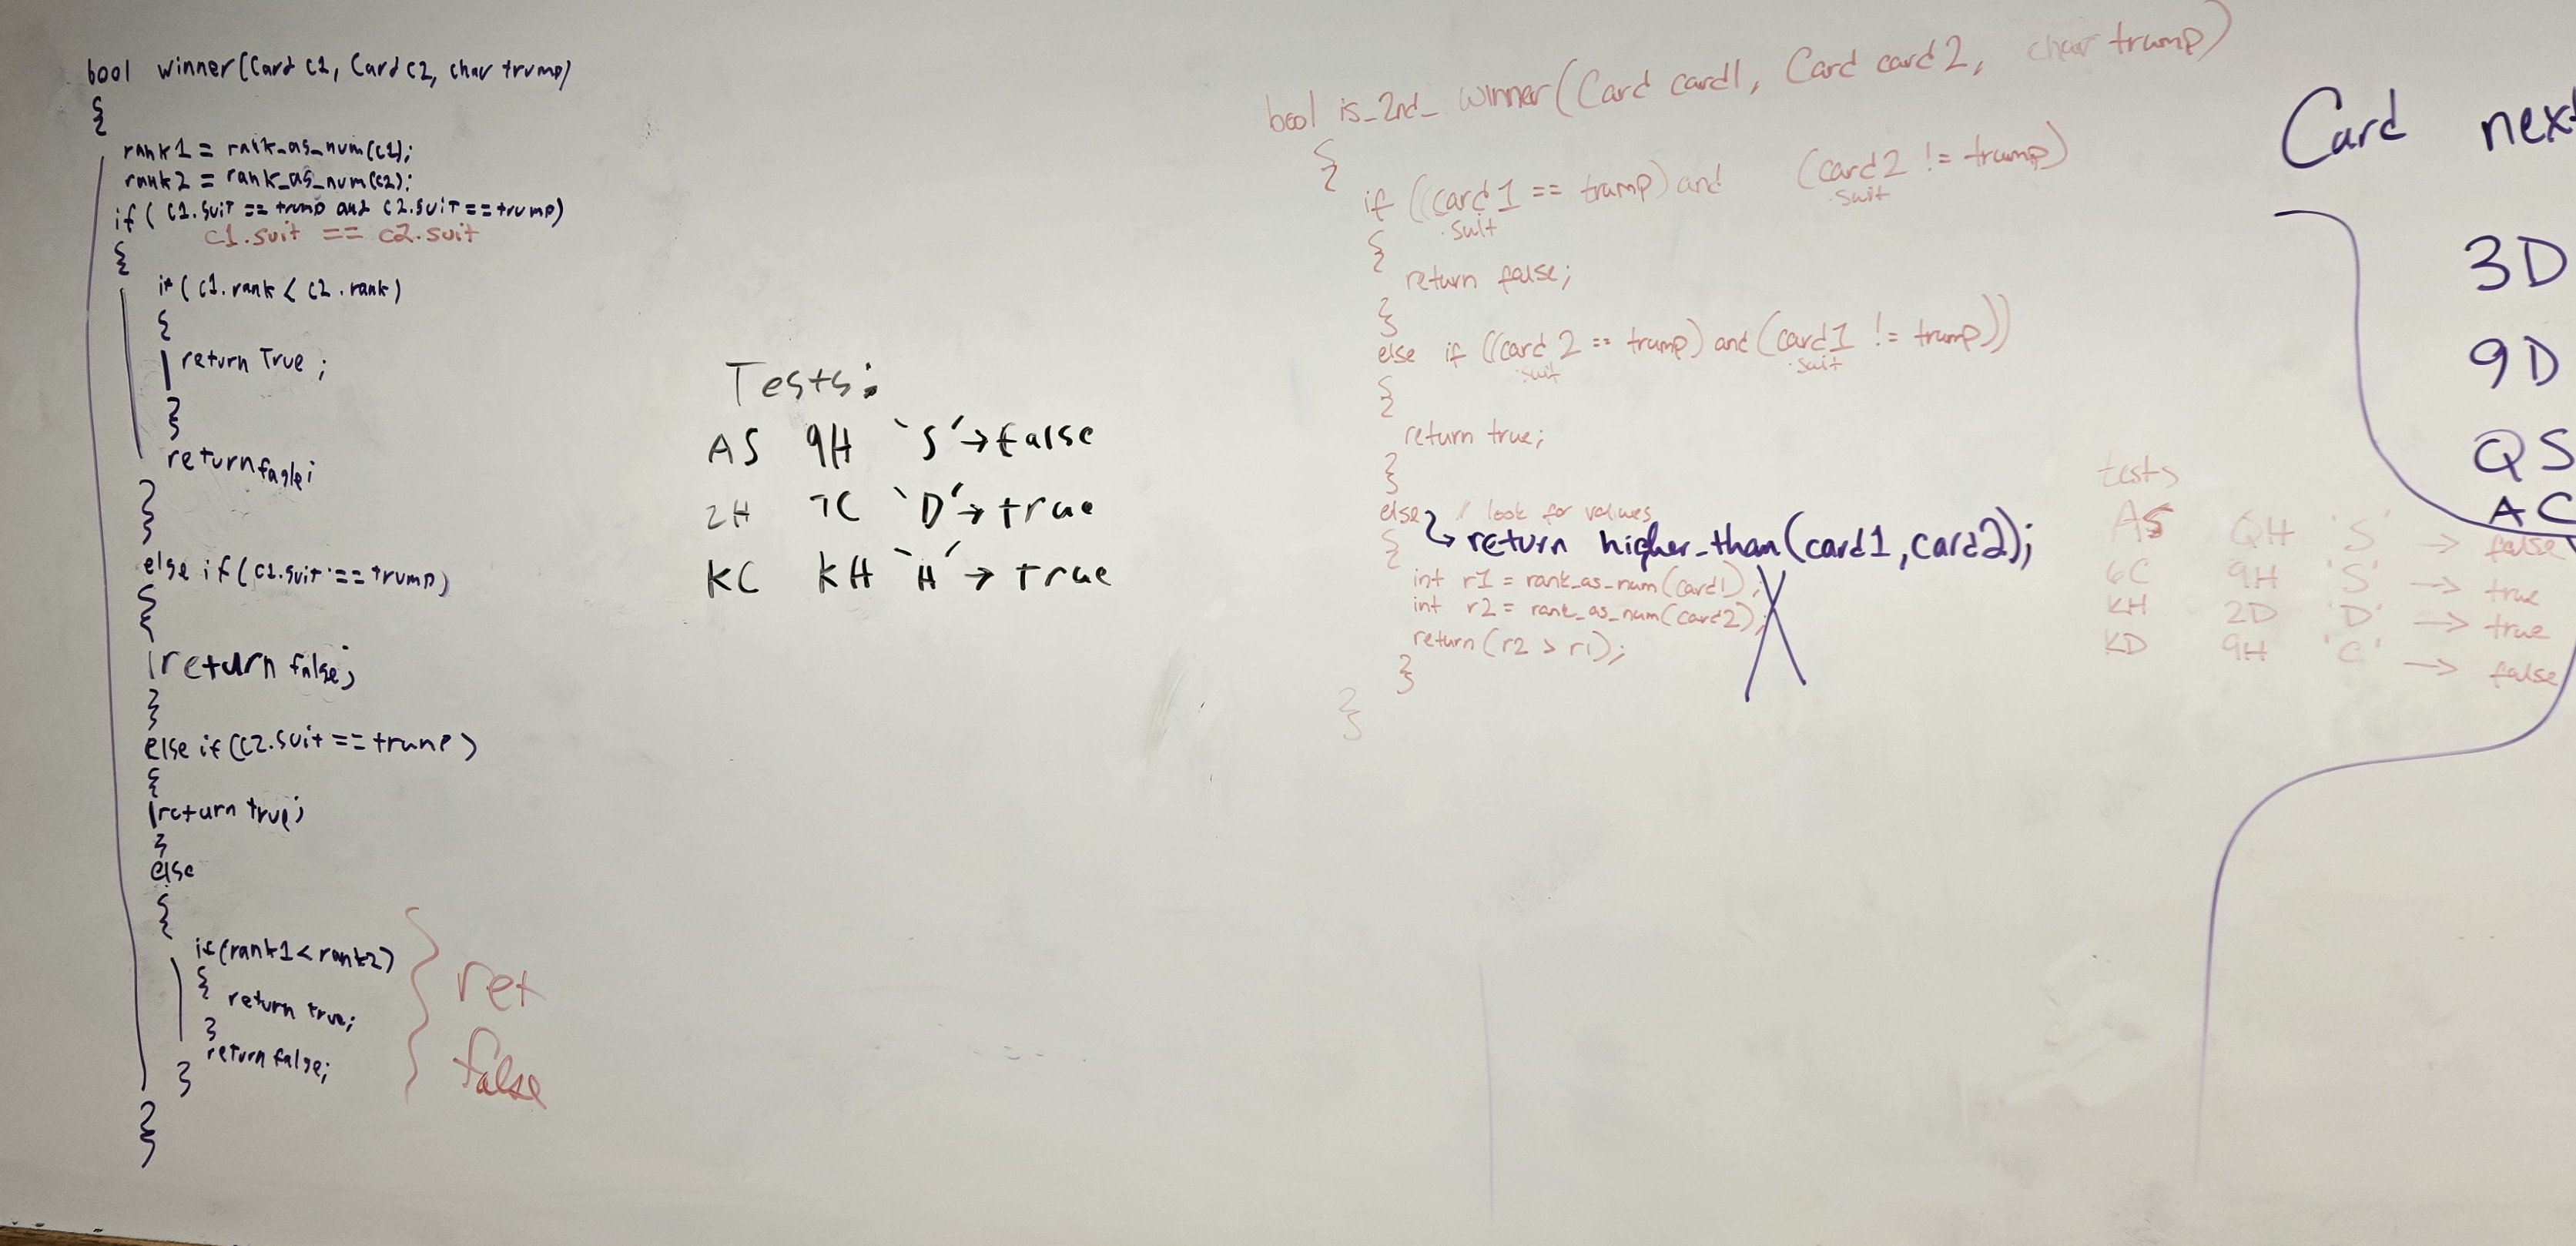 bool winner(Card c1, Card c2, char trump)
{
rank1 = rank_as_num(c1);
rank2 = rank_as_num(c2);
if ( c1.suit == trump and c2.suit == trump)
c1.suit == c2.suit
{
if ( c1.rank < c2.rank)
{
return True ;
}
return fasle;
}
}
else if (c1.suit == trump)
{
return false;
}
else if (c2.suit == trump)
{
return true;
}
else
{
if (rank1 < rank2)
{
return true;
}
return false;
}
}
ret
false
Tests:
AS 9H 'S' → false
2H 7C 'D' → true
KC KH 'H' → true
bool is_2nd_winner(Card card1, Card card2, char trump)
{
if ((card1 == trump) and (card2 != trump)
.suit suit
{
return false;
}
else if ((card2 == trump) and (card1 != trump))
.suit .suit
{
return true;
}
else // look for values
→ return higher_than(card1, card2);
{
int r1 = rank_as_num(card1);
int r2 = rank_as_num(card2);
return (r2 > r1);
}
}
tests
AS QH 'S' → false
6C 9H 'S' → true
KH 2D 'D' → true
KD 9H 'C' → false
Card next
3D
9D
QS
AC